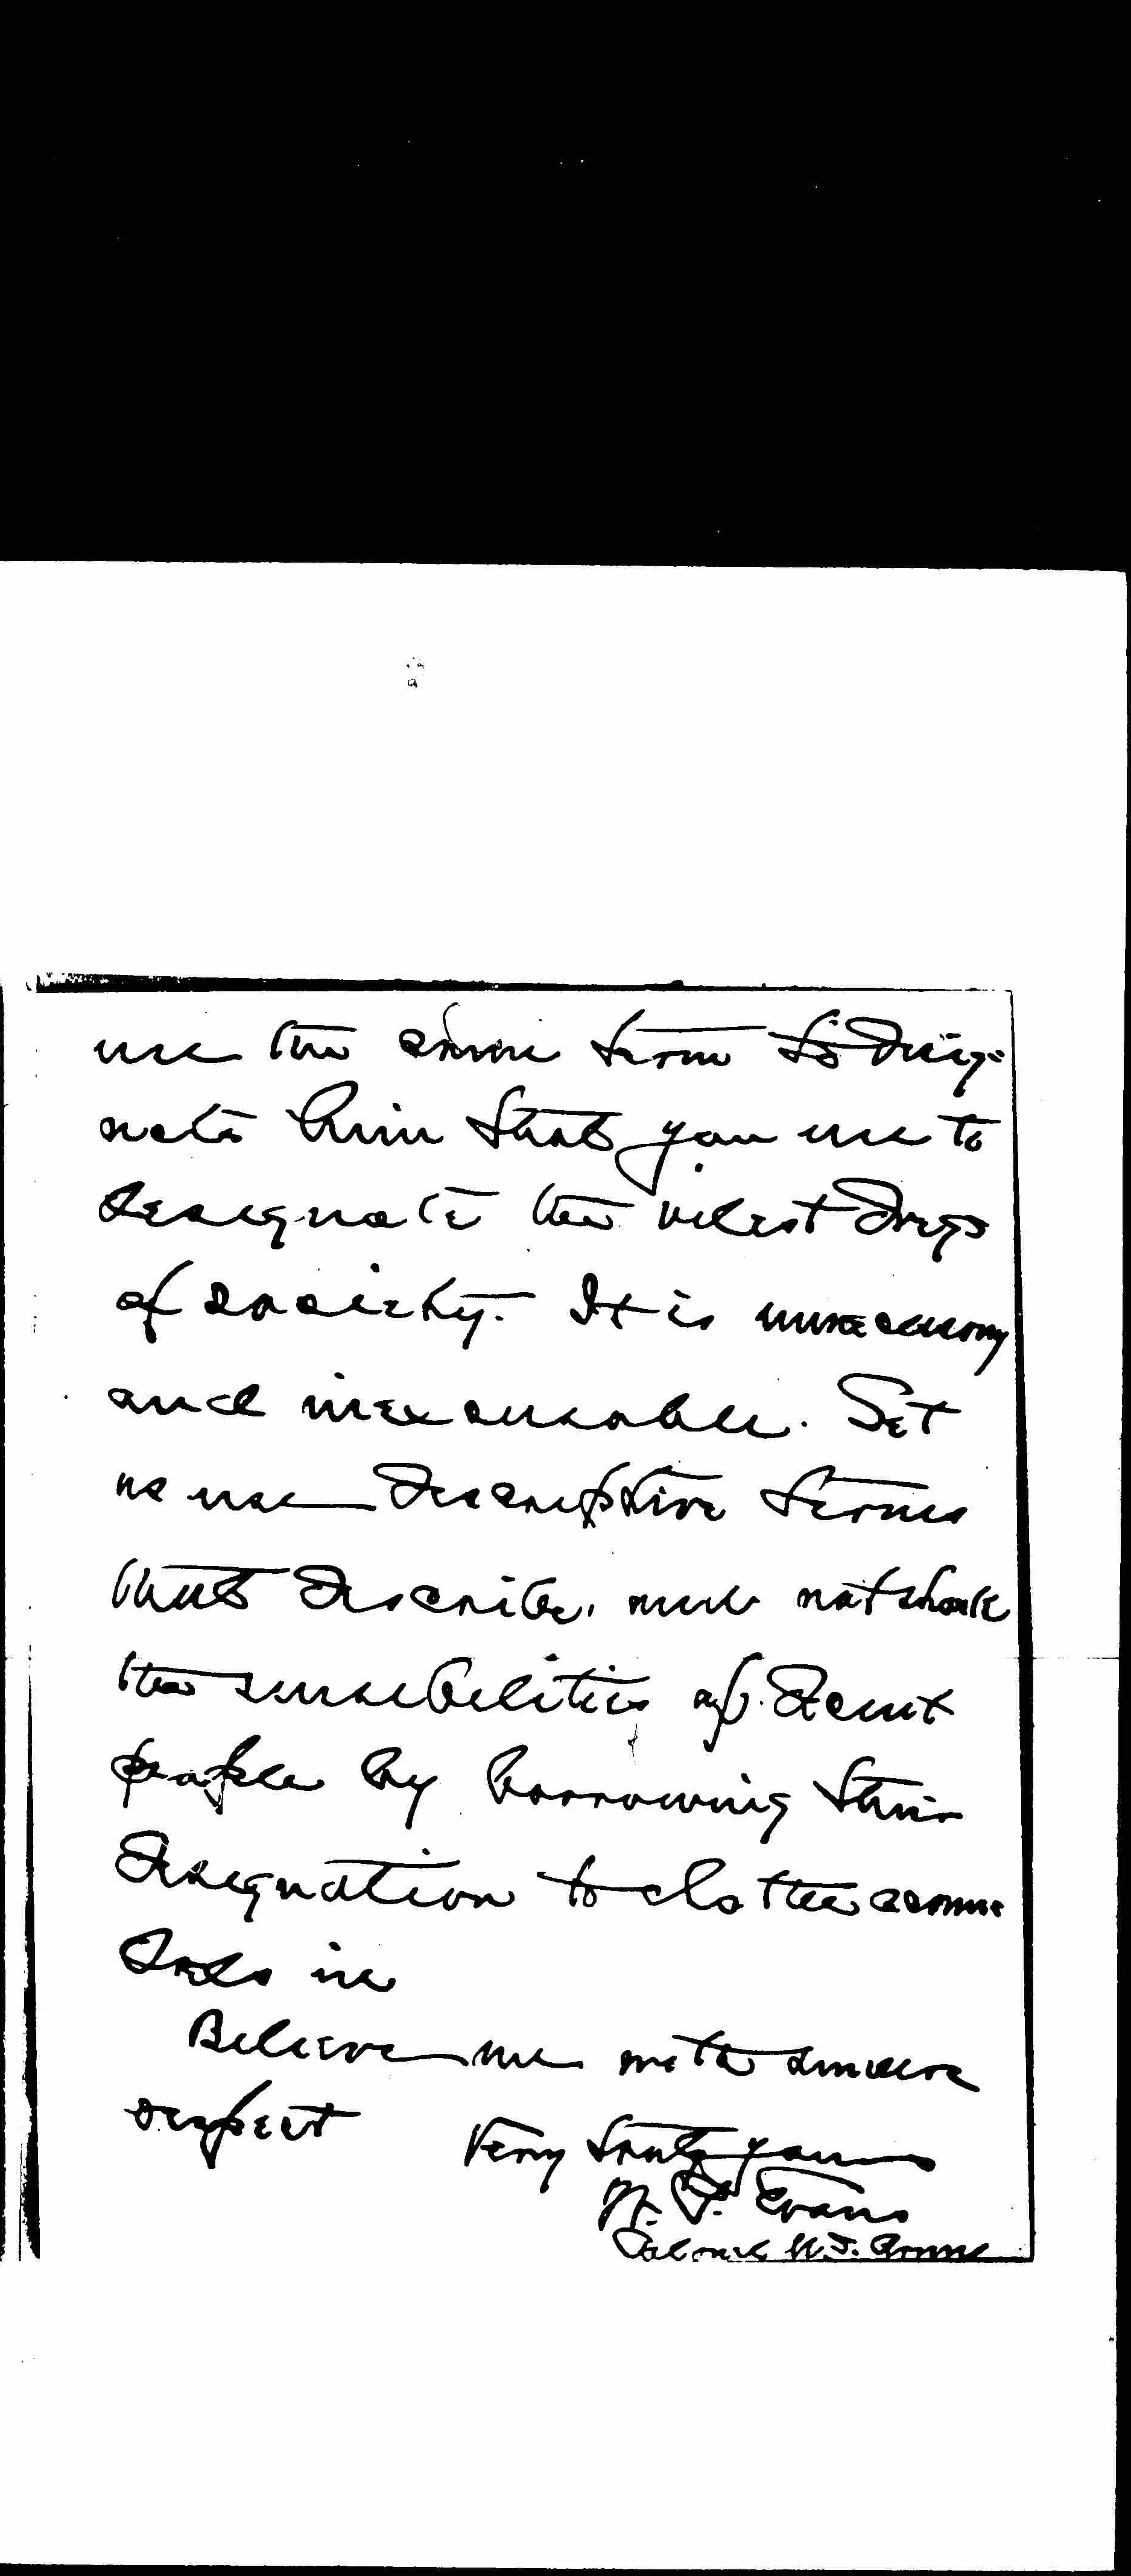 use the same term to desig-
nate him that you use to
designate the vilest dregs
of society. It is unnecessary
and inexcusable. Let
us use descriptive terms
that describe, and not shock
the sensibilities of decent
people by borrowing their
designation to clothe scoun
drels in
Believe me with sincere
respect
Very truly yours
H. Evans
Colonel W. J.